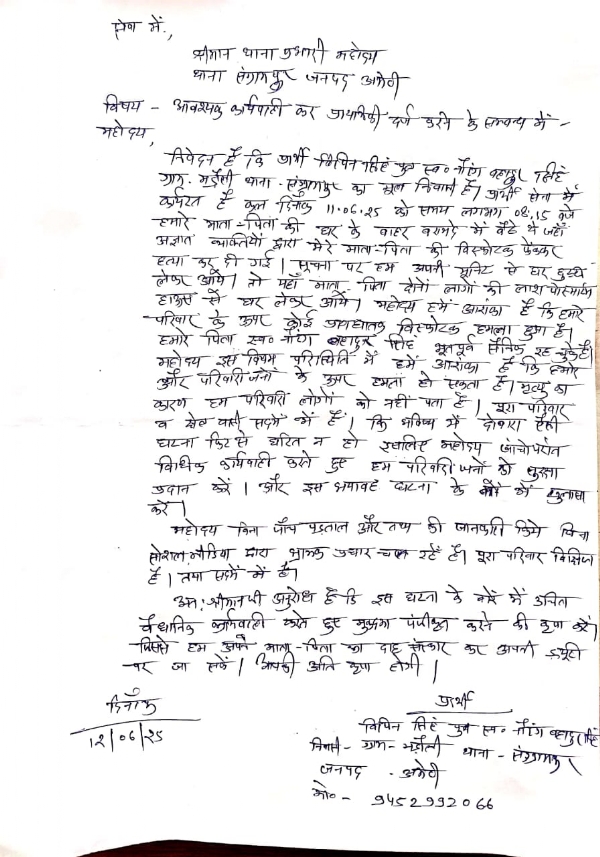 सेवा में,
श्रीमान थाना प्रभारी महोदय
थाना संग्रामपुर जनपद अमेठी
विषय - आवश्यक कार्यवाही कर प्राथमिकी दर्ज करने के सम्बन्ध में -
महोदय,
निवेदन है कि प्रार्थी विपिन सिंह पुत्र स्व० नौरंग बहादुर सिंह
ग्राम. भदौली थाना - संग्रामपुर का मूल निवासी है। प्रार्थी सेना में
कार्यरत है कल दिनाँक 11.06.25 को समय लगभग 08.15 बजे
हमारे माता-पिता की घर के बाहर बरामदे में बैठे थे जहाँ
अज्ञात व्यक्तियों द्वारा मेरे माता-पिता की विस्फोटक फेंककर
हत्या कर दी गई। सूचना पर हम अपनी यूनिट से घर
लेकर आये। तो यहाँ माता-पिता दोनों लोगों की लाश पोस्टमार्टम
हाऊस से घर लेकर आये। महोदय हमें आशंका है कि हमारे
परिवार के ऊपर कोई विस्फोटक हमला हुआ है।
हमारे पिता स्व० नौरंग बहादुर सिंह भूतपूर्व सैनिक रह चुके है।
महोदय इस विषम परिस्थिति में हमें आशंका है कि हमारे
और परिवारीजनों के ऊपर हमला हो सकता है। मृत्यु का
कारण हम परिवारी लोगों को नहीं पता है। पूरा परिवार
व क्षेत्र वासी सदमें में हैं। कि भविष्य में दोबारा ऐसी
घटना फिर से घटित न हो इसलिए महोदय जांचोपरांत
विधिक कार्यवाही करते हुए हम परिवारीजनों को सुरक्षा
प्रदान करें। और इस भयावह घटना के बारे में खुलासा
करें।
महोदय बिना जाँच पड़ताल और तथ्य की जानकारी किये बिना
सोशल मीडिया द्वारा भ्रामक प्रचार चला रहें है। पूरा परिवार विक्षिप्त
है। तथा सदमें में है।
अतः श्रीमान जी अनुरोध है कि इस घटना के बारे में उचित
वैधानिक कार्यवाही करते हुए मुकदमा पंजीकृत करने की कृपा करें।
जिससे हम अपने माता-पिता का दाह संस्कार कर अपनी ड्यूटी
पर जा सकें। आपकी अति कृपा होगी।
दिनाँक
12/06/25
प्रार्थी
विपिन सिंह पुत्र स्व० नौरंग बहादुर सिंह
निवासी - ग्राम - भदौली थाना - संग्रामपुर
जनपद - अमेठी
मो० - 9452992066